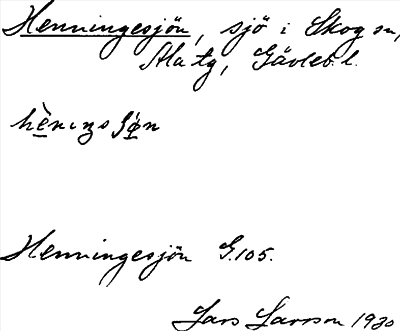 Henningesjön, sjö i Skog sn,
Ala tg, Gävleb. l.
hènıŋs ʃø̀n
Henningesjön G.105.
Lars Larsson 1930